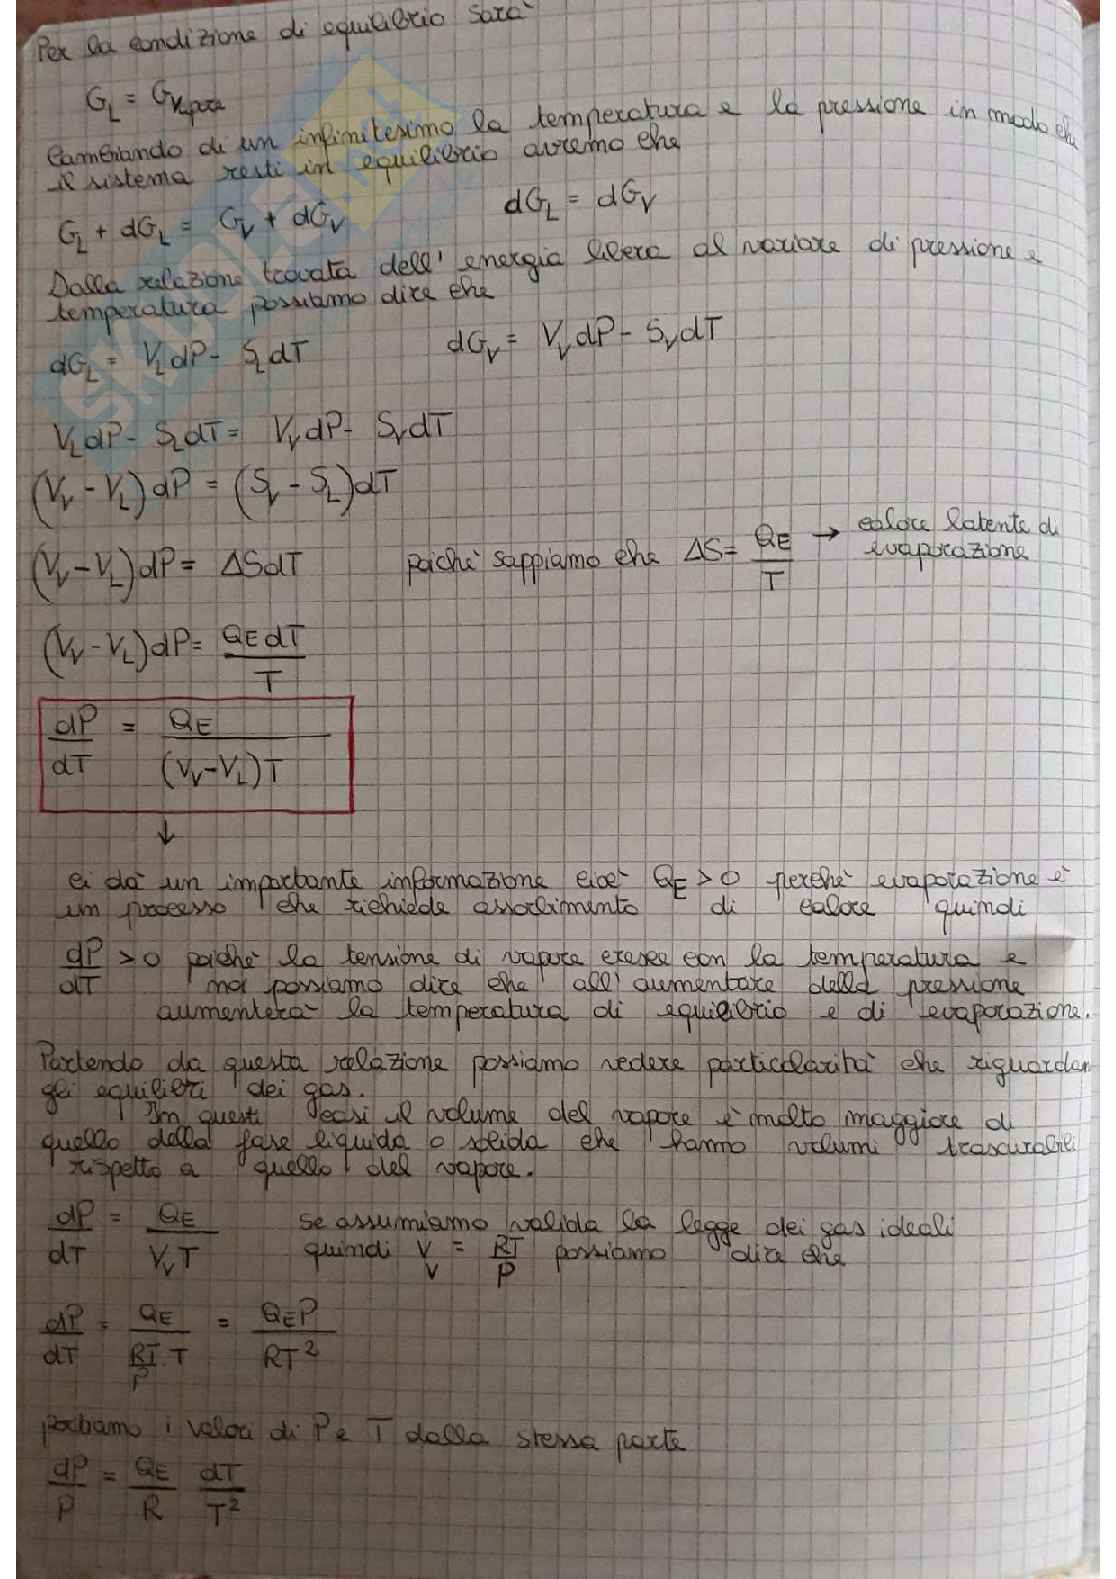 Per la condizione di equilibrio sara'
G_L = G_Vapore
Cambiando di un infinitesimo la temperatura e la pressione in modo che
il sistema resti in equilibrio avremo che
G_L + dG_L = G_V + dG_V dG_L = dG_V
Dalla relazione trovata dell' energia libera al variare di pressione e
temperatura possiamo dire che
dG_L = V_L dP - S_L dT dG_V = V_V dP - S_V dT
V_L dP - S_L dT = V_V dP - S_V dT
(V_V - V_L) dP = (S_V - S_L) dT
(V_V - V_L) dP = ΔS dT poiche' sappiamo che ΔS = Q_E / T → calore latente di
evaporazione
(V_V - V_L) dP = Q_E dT / T
dP / dT = Q_E / (V_V - V_L) T
↓
ci da' un importante informazione cioe' Q_E > 0 perche' evaporazione e'
un processo che richiede assorbimento di calore quindi
dP / dT > 0 poiche' la tensione di vapore cresce con la temperatura e
noi possiamo dire che all' aumentare della pressione
aumentera' la temperatura di equilibrio e di evaporazione.
Partendo da questa relazione possiamo vedere particolarita' che riguardan
gli equilibri dei gas.
In questi casi il volume del vapore e' molto maggiore di
quello della fase liquida o solida che hanno volumi trascurabili
rispetto a quello del vapore.
dP / dT = Q_E / V_V T se assumiamo valida la legge dei gas ideali
quindi V_V = RT / P possiamo dire che
dP / dT = Q_E / (RT / P · T) = Q_E P / RT²
portiamo i valori di P e T dalla stessa parte
dP / P = Q_E / R dT / T²